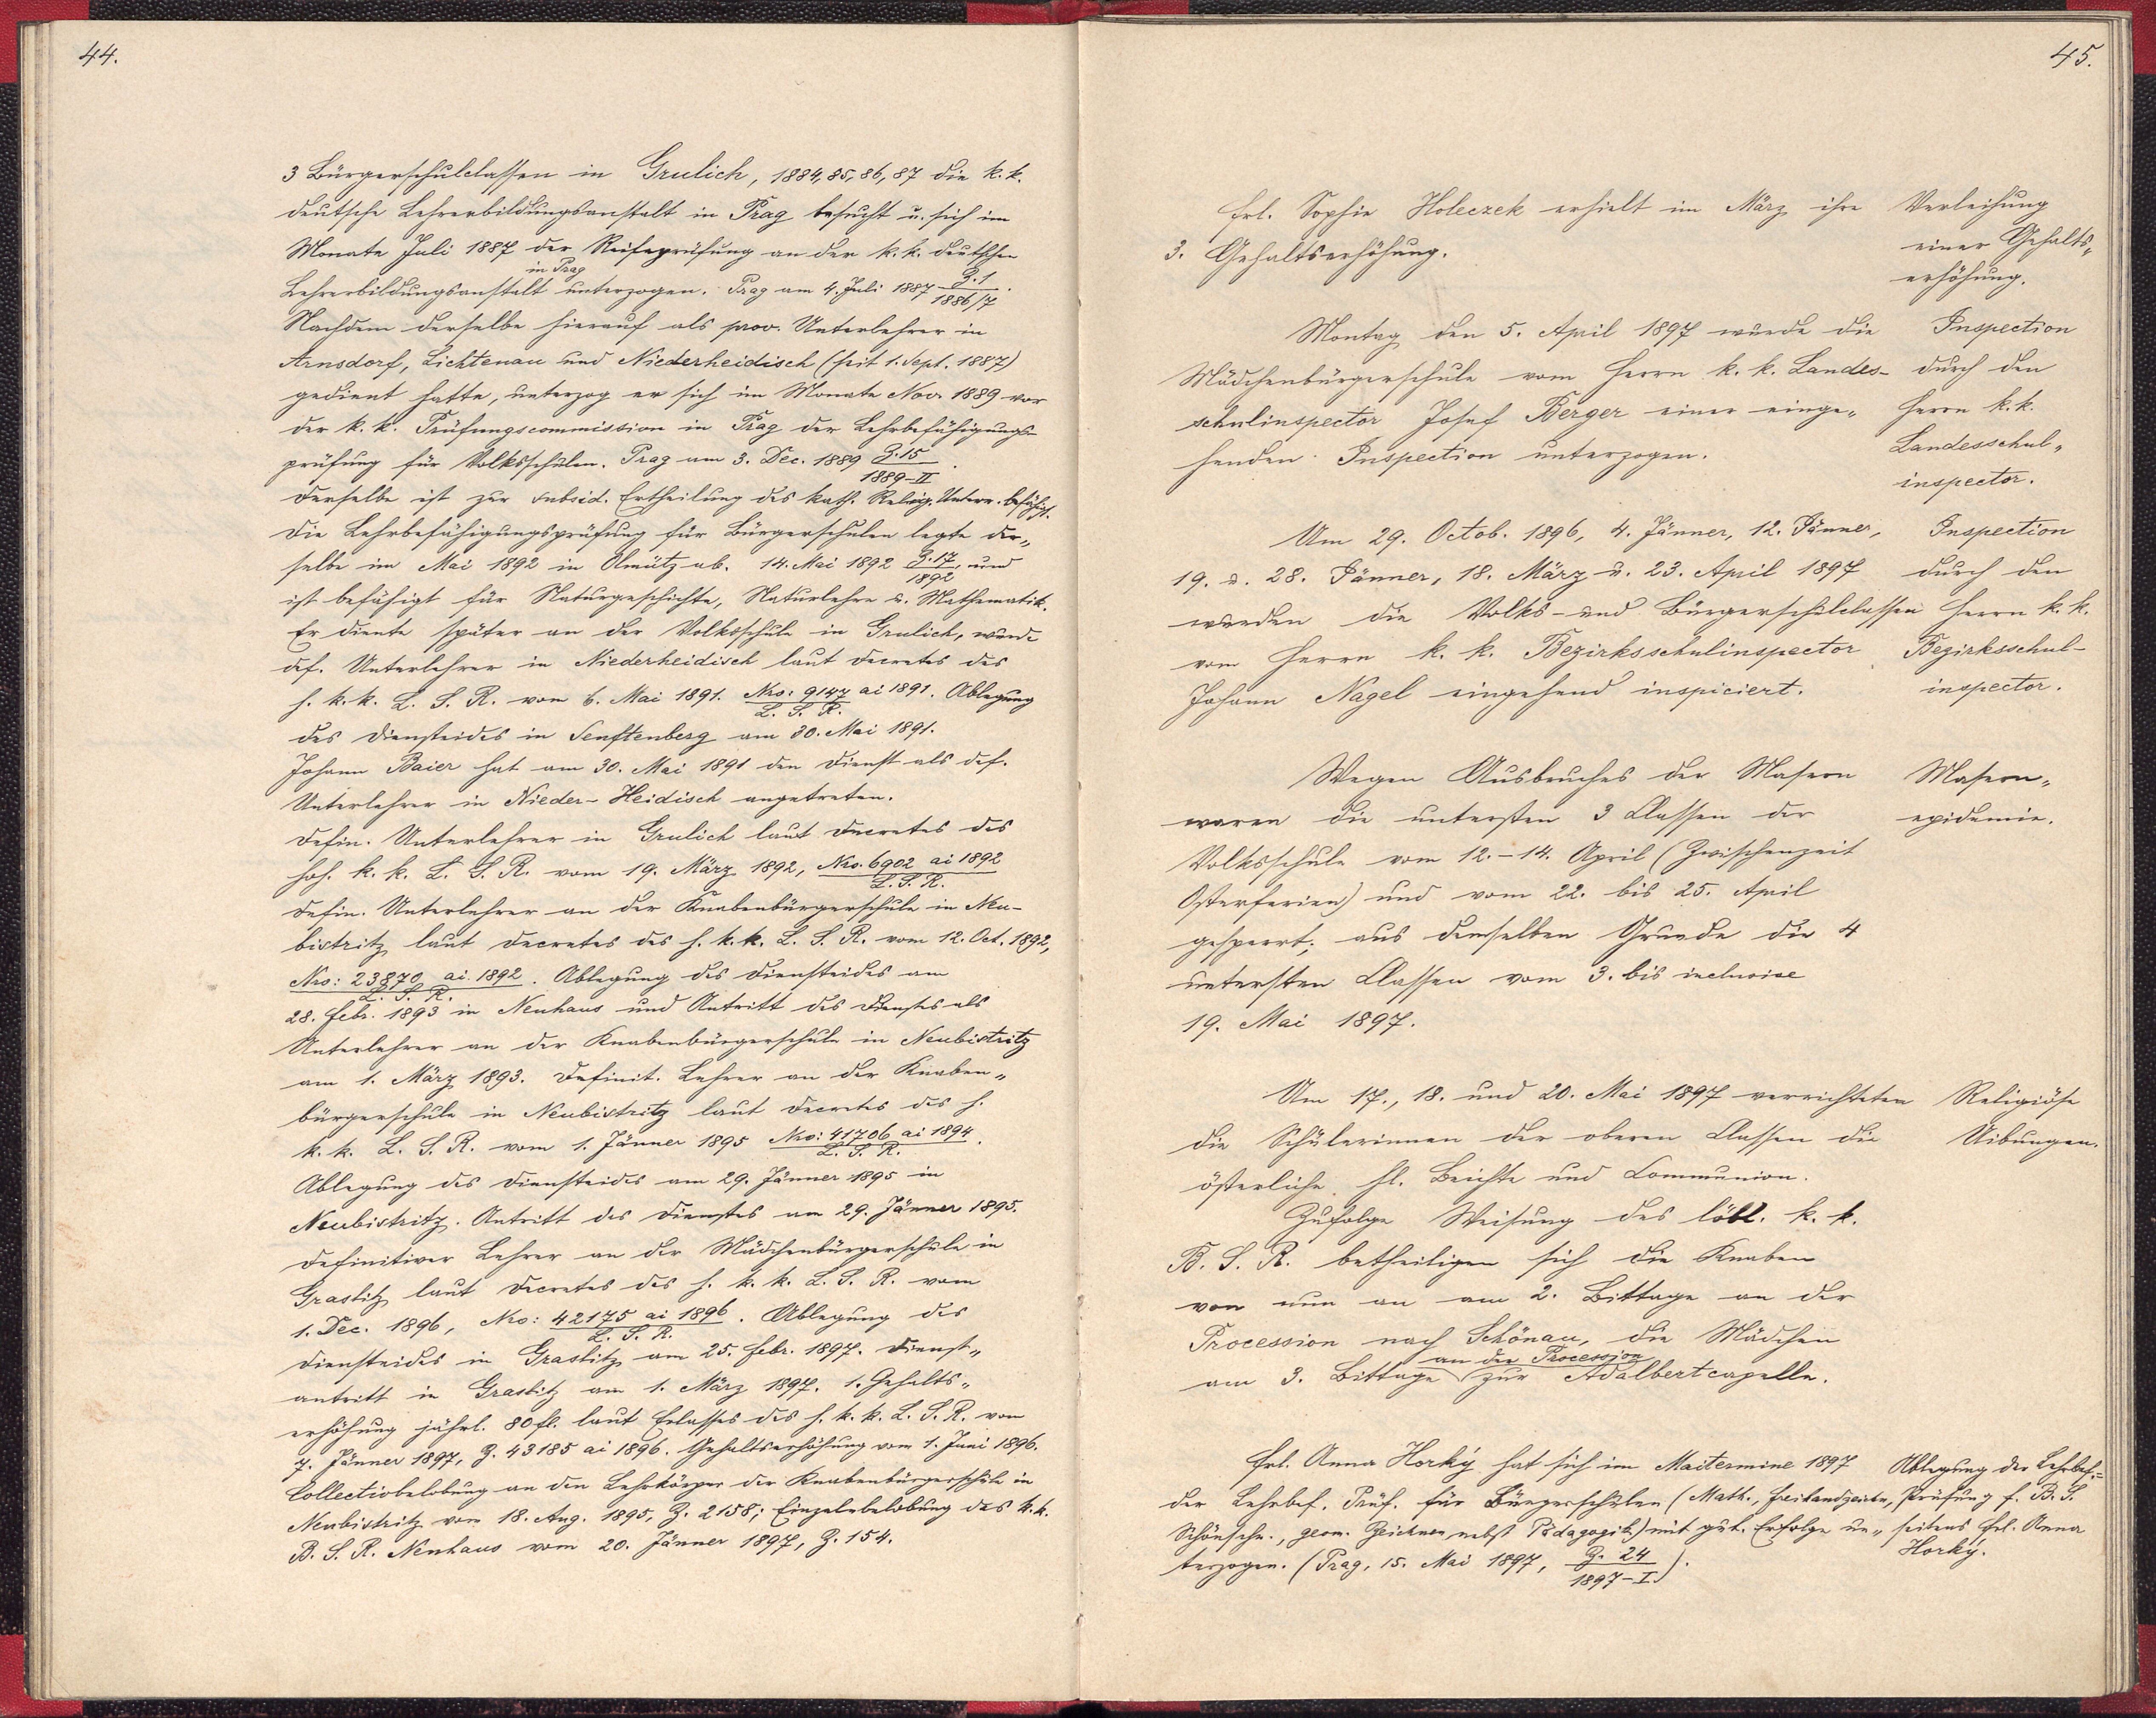 44.
3 Bürgerschulclassen in Grulich, 1884, 85, 86, 87 die k. k.
deutsche Lehrerbildungsanstalt in Prag besucht u. sich im
Monate Juli 1887 der Reifeprüfung an der k. k. deutschen
in Prag
Lehrerbildungsanstalt unterzogen. Prag am 4. Juli 1887 Z. 1/1886/7.
Nachdem derselbe hierauf als prov. Unterlehrer in
Arnsdorf, Lichtenau und Niederheidisch (seit 1. Sept. 1887)
gedient hatte, unterzog er sich im Monate Nov. 1889 vor
der k. k. Prüfungscommission in Prag der Lehrbefähigungs-
prüfung für Volksschulen. Prag am 3. Dec. 1889 Z. 15/1889-II.
Derselbe ist zur subsid. Ertheilung des kath. Relig. Unterr. befähigt.
Die Lehrbefähigungsprüfung für Bürgerschulen legte der-
selbe im Mai 1892 in Olmütz ab. 14. Mai 1892 Z. 17/1892, und
ist befähigt für Naturgeschichte, Naturlehre u. Mathematik.
Er diente später an der Volksschule in Grulich, wurde
def. Unterlehrer in Niederheidisch laut Decretes des
h. k. k. L. S. R. vom 6. Mai 1891. Nro: 9147 ai 1891/L. S. R. Ablegung
des Diensteides in Senftenberg am 30. Mai 1891.
Johann Baier hat am 30. Mai 1891 den Dienst als def.
Unterlehrer in Nieder-Heidisch angetreten.
Defin. Unterlehrer in Grulich laut Decretes des
hoh. k. k. L. S. R. vom 19. März 1892, Nro. 6902 ai 1892/L. S. R.
Defin. Unterlehrer an der Knabenbürgerschule in Neu-
bistritz laut Decretes des h. k. k. L. S. R. vom 12. Oct. 1892,
Nro: 23870 ai 1892/L. S. R. Ablegung des Diensteides am
28. Febr. 1893 in Neuhaus und Antritt des Dienstes als
Unterlehrer an der Knabenbürgerschule in Neubistritz
am 1. März 1893. Definit. Lehrer an der Knaben-
bürgerschule in Neubistritz laut Decretes des h.
k. k. L. S. R. vom 1. Jänner 1895 Nro: 41706 ai 1894/L. S. R.
Ablegung des Diensteides am 29. Jänner 1895 in
Neubistritz. Antritt des Dienstes am 29. Jänner 1895.
Definitiver Lehrer an der Mädchenbürgerschule in
Graslitz laut Decretes des h. k. k. L. S. R. vom
1. Dec. 1896, Nro: 42175 ai 1896/L. S. R. Ablegung des
Diensteides in Graslitz am 25. Febr. 1897. Dienst-
antritt in Graslitz am 1. März 1897. 1. Gehalts-
erhöhung jährl. 80 fl. laut Erlasses des h. k. k. L. S. R. vom
7. Jänner 1897, Z. 43185 ai 1896. Gehaltserhöhung vom 1. Juni 1896.
Collectivbelobung an den Lehrkörper der Knabenbürgerschule in
Neubistritz vom 18. Aug. 1895, Z. 2158; Einzelnbelobung des k. k.
B. S. R. Neuhaus vom 20. Jänner 1897, Z. 154.
45.
Frl. Sophie Holeczek erhielt im März ihre
3. Gehaltserhöhung.
Verleihung
einer Gehalts-
erhöhung.
Montag den 5. April 1897 wurde die
Mädchenbürgerschule vom Herrn k. k. Landes-
schulinspector Josef Berger einer einge-
henden Inspection unterzogen.
Inspection
durch den
Herrn k. k.
Landesschul-
inspector.
Am 29. Octob. 1896, 4. Jänner, 12. Jänner,
19. u. 28. Jänner, 18. März u. 23. April 1897
wurden die Volks- und Bürgerschulclassen
vom Herrn k. k. Bezirksschulinspector
Johann Nagel eingehend inspiciert.
Inspection
durch den
Herrn k. k.
Bezirksschul-
inspector.
Wegen Ausbruches der Masern
waren die untersten 3 Classen der
Volksschule vom 12.-14. April (Zwischenzeit
Osterferien) und vom 22. bis 25. April
gesperrt; aus demselben Grunde die 4
untersten Classen vom 3. bis inclusive
19. Mai 1897.
Masern-
epidemie.
Am 17., 18. und 20. Mai 1897 verrichteten
die Schülerinnen der oberen Classen die
österliche hl. Beichte und Communion.
Religiöse
Uibungen.
Zufolge Weisung des löbl. k. k.
B. S. R. betheiligen sich die Knaben
von nun an am 2. Bittage an der
Procession nach Schönau, die Mädchen
an der Procession
am 3. Bittage zur Adalbertcapelle.
Frl. Anna Horký hat sich im Maitermine 1897
der Lehrbef. Prüf. für Bürgerschulen (Math., Freihandzeichn.,
Schönschr., geom. Zeichnen nebst Pädagogik) mit gut. Erfolge un-
terzogen. (Prag, 15. Mai 1897, Z. 24/1897-I.)
Ablegung der Lehrbef.-
Prüfung f. B. S.
seitens Frl. Anna
Horký.